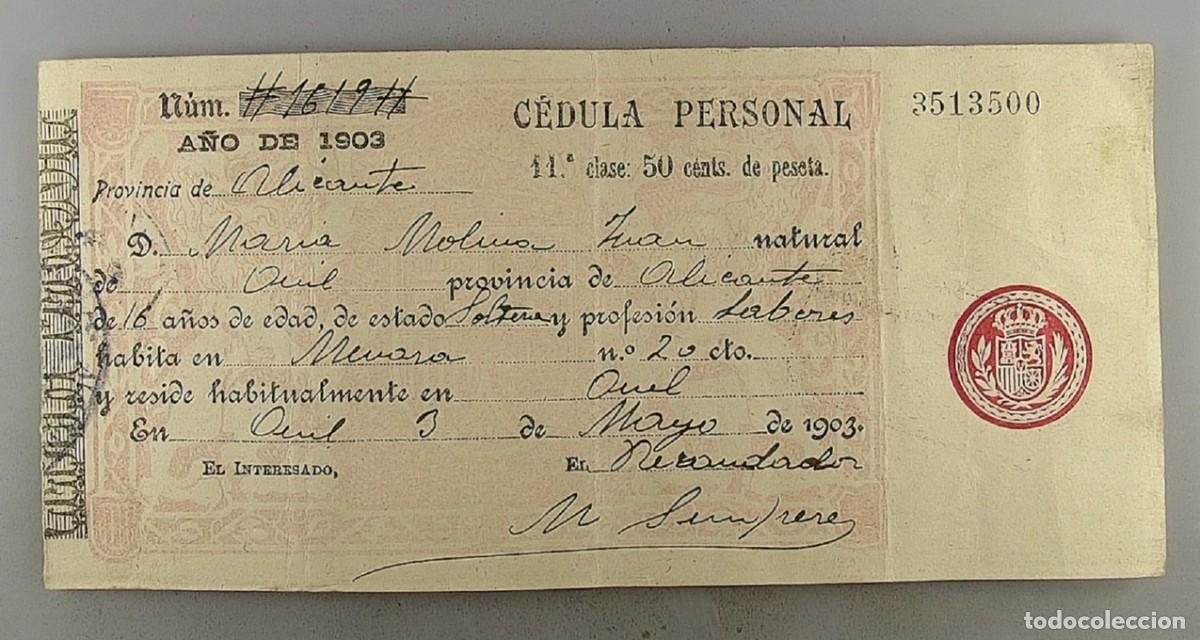 Núm. #1619#
AÑO DE 1903
CÉDULA PERSONAL
3513500
11.ª clase: 50 cénts. de peseta.
Provincia de Alicante
D. Maria Molina Juan natural
de Onil provincia de Alicante
de 16 años de edad, de estado Soltera y profesión Labores
habita en n.º 20 cto.
y reside habitualmente en Onil
En Onil 3 de Mayo de 1903.
EL INTERESADO,
EL Recaudador
M Sempere
todocoleccion